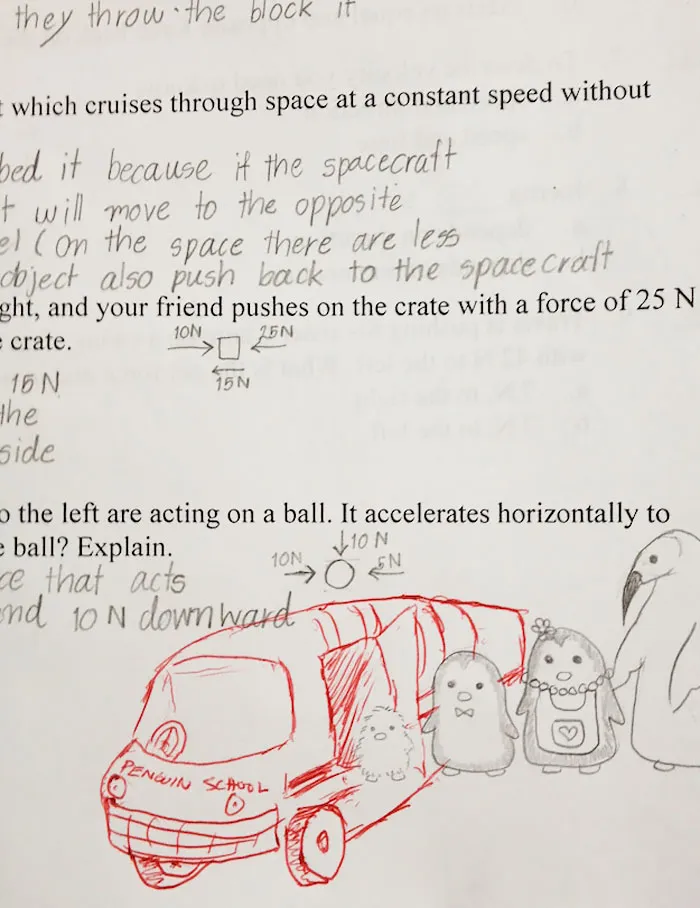 they throw the block it
which cruises through space at a constant speed without
bed it because if the spacecraft
t will move to the opposite
el (on the space there are less
object also push back to the spacecraft
ght, and your friend pushes on the crate with a force of 25 N
e crate.
10N 25N
15N
15 N
the
side
o the left are acting on a ball. It accelerates horizontally to
e ball? Explain.
10 N
10N 5N
ce that acts
and 10 N downward
PENGUIN SCHOOL